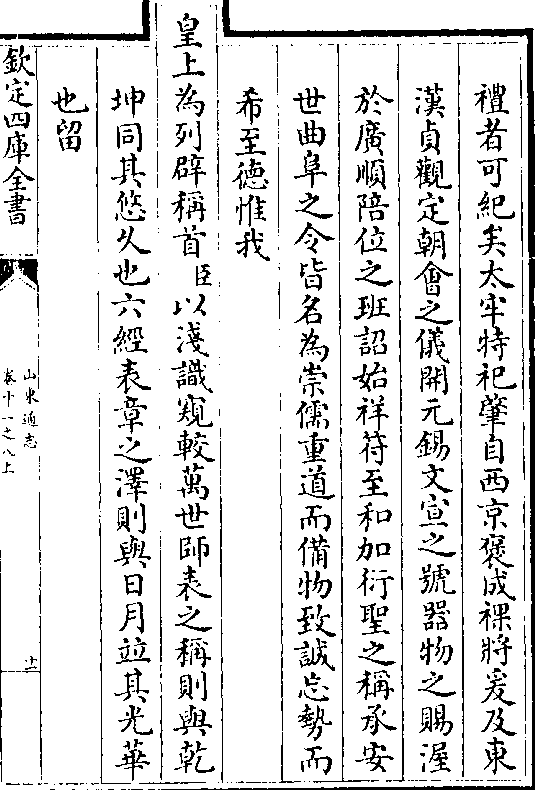 禮者可紀矣太牢特祀肇自西京褒成祼將爰及東
漢貞觀定朝會之儀開元錫文宣之號器物之賜渥
於廣順陪位之班詔始祥符至和加衍聖之稱承安
世曲阜之令皆名為崇儒重道而備物致誠忘勢而
希至德惟我
皇上為列辟稱首臣以淺識窺較萬世師表之稱則與乾
坤同其悠久也六經表章之澤則與日月竝其光華
也留
欽定四庫全書
山東通志
卷十一之八上
十二